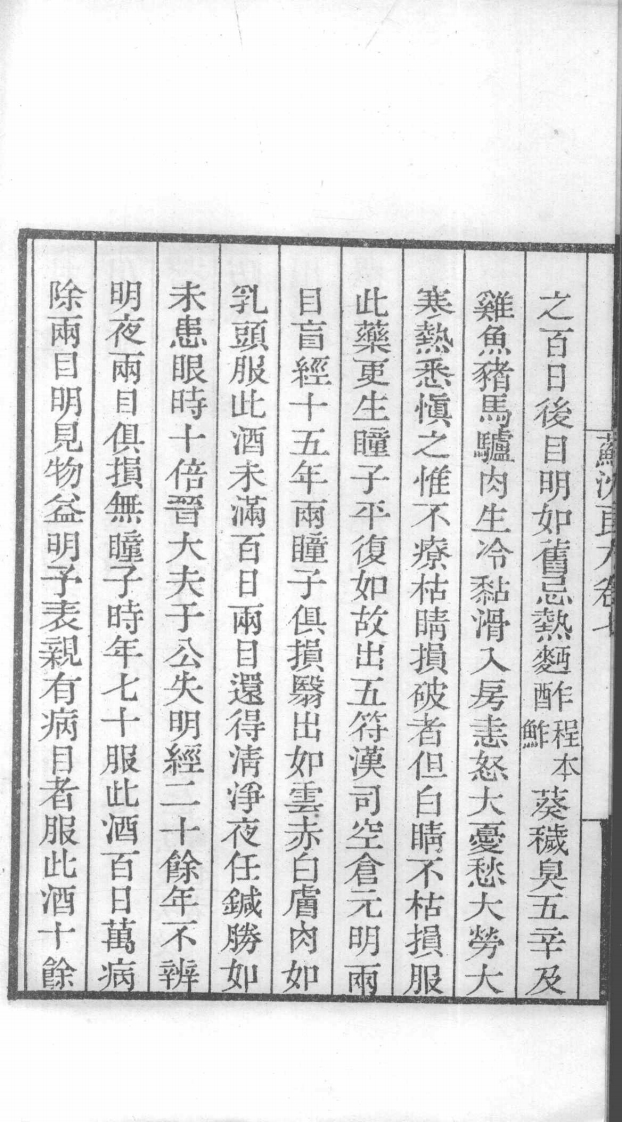 之百日後目明如舊忌熱麪酢程本鮓葵穢臭五辛及
雞魚豬馬驢肉生冷黏滑入房恚怒大憂愁大勞大
寒熱悉愼之惟不療枯睛損破者但白睛不枯損服
此藥更生瞳子平復如故出五符漢司空倉元明兩
目盲經十五年兩瞳子俱損翳出如雲赤白膚肉如
乳頭服此酒未滿百日兩目還得淸淨夜任鍼勝如
未患眼時十倍晉大夫于公失明經二十餘年不辨
明夜兩目俱損無瞳子時年七十服此酒百日萬病
除兩目明見物益明予表親有病目者服此酒十餘